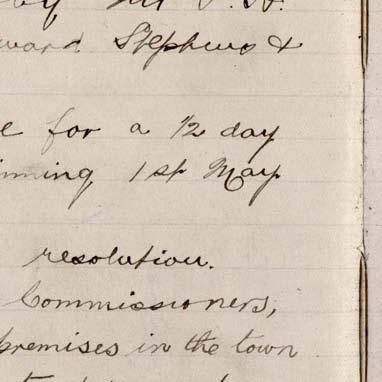 by Mr
ward Stephens &
e for a 1/2 day
inning 1st May
resolution.
Commissioners,
premises in the town